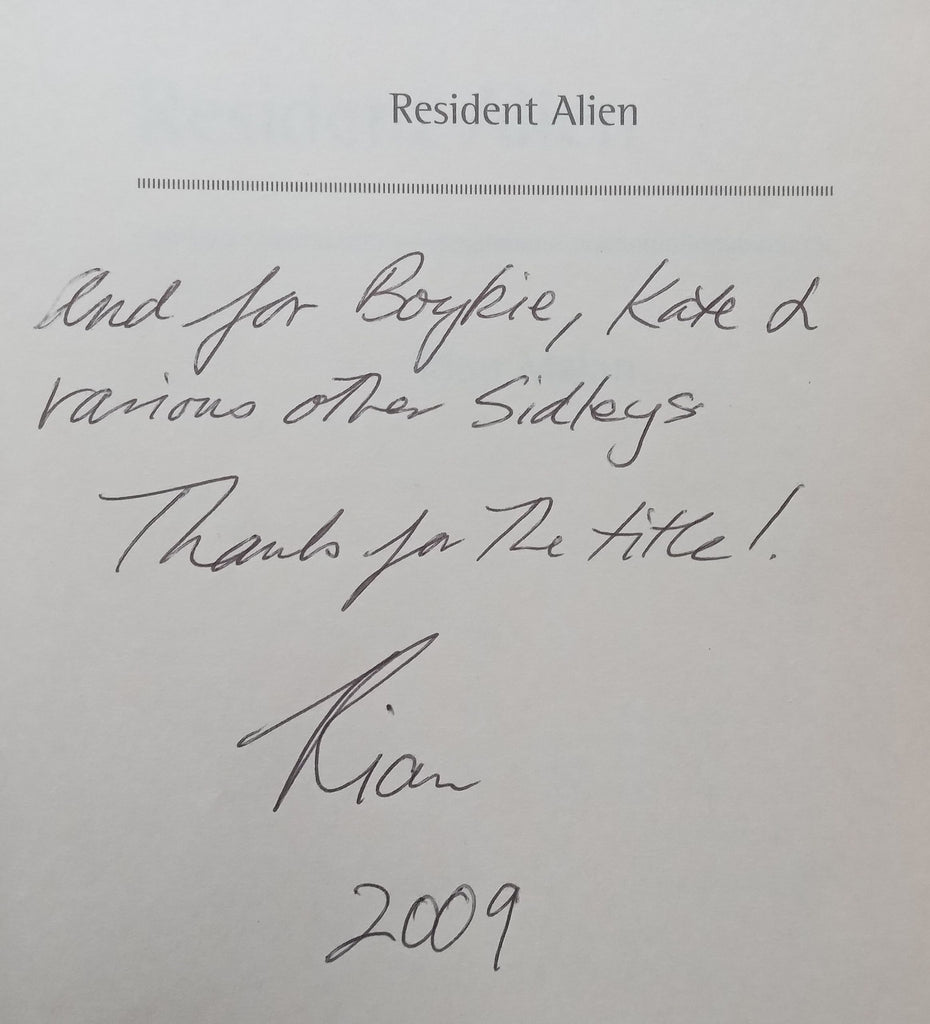 Resident Alien
And for Boykie, Kate &
various other Sidleys
Thanks for the title!
Rian
2009